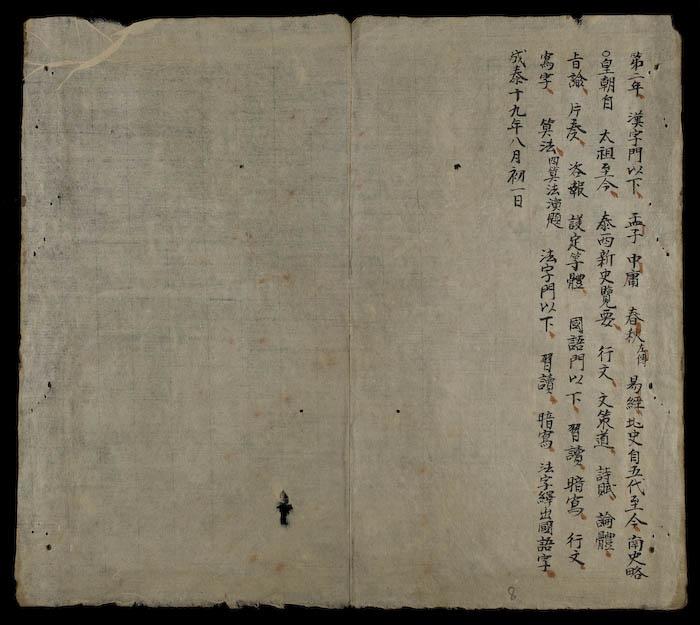 第二年 漢字門以下 孟子 中庸 春秋左傳 易經 北史自五代至今 南史略
○皇朝自 太祖至今 泰西新史覽要 行文 文策道 詩賦 論體
旨諭 片奏 咨報 議定等體 國語門以下 習讀 暗寫 行文
寫字 算法四算法演題 法字門以下 習讀 暗寫 法字繹出國語字
成泰十九年八月初一日
8